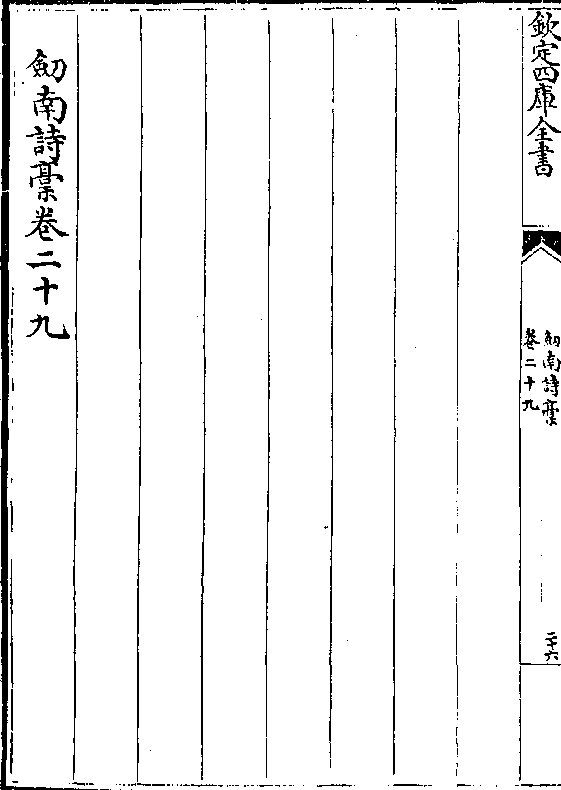 欽定四庫全書
劒南詩稾
卷二十九
二十六
劒南詩稾卷二十九